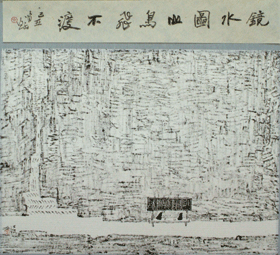 鏡水圖山鳥飛不渡